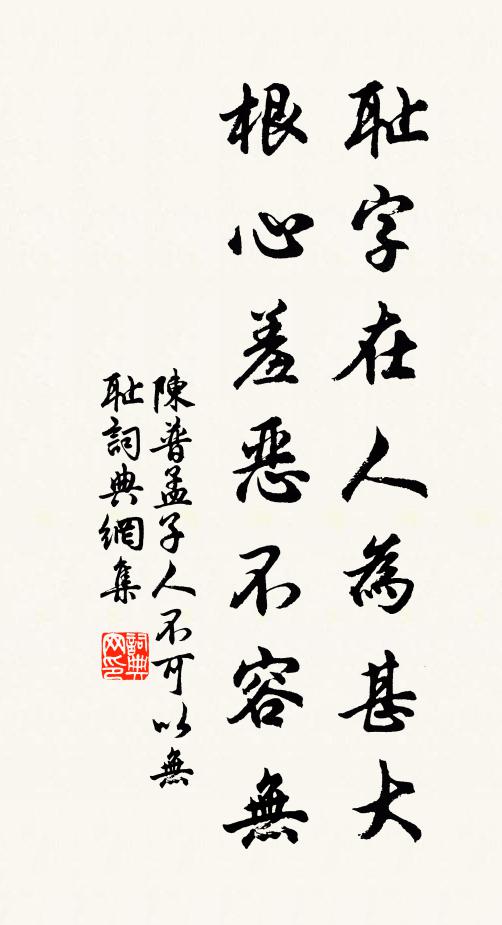 耻字在人為甚大
根心羞惡不容無
陳普孟子人不可以無
耻詞典網集
詞典
网印